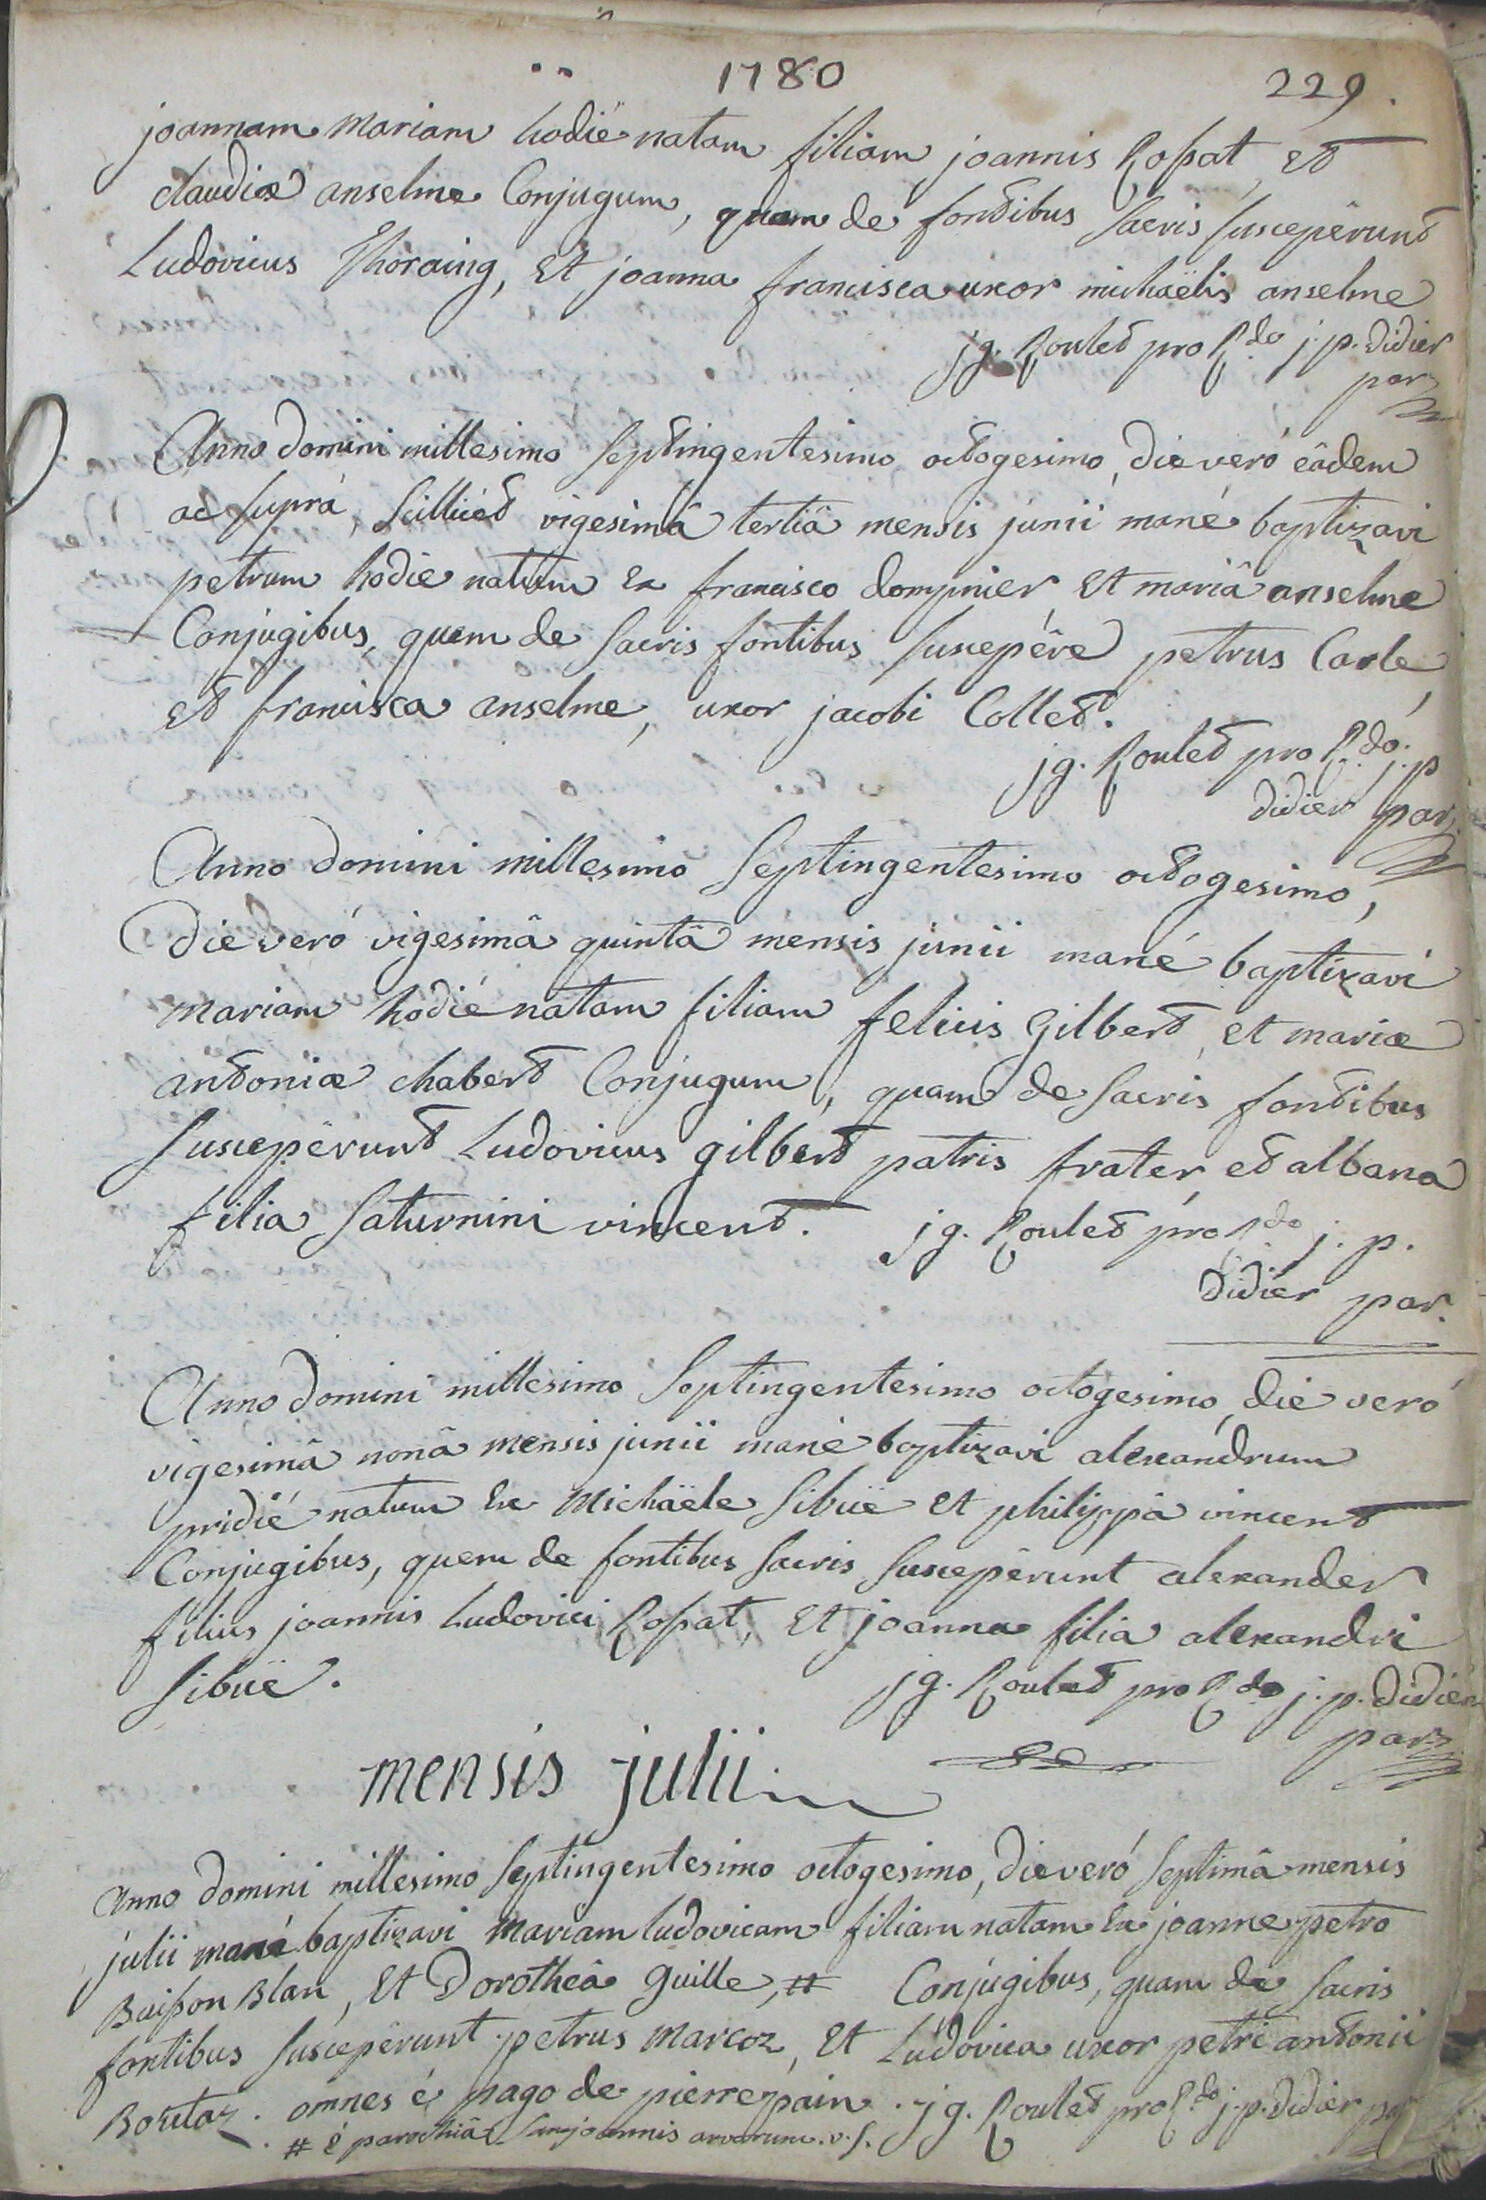 1780
229.
joannam mariam hodiè natam filiam joannis Rossat, et
claudiæ anselme Conjugum, quam de fontibus sacris susceperunt
Ludovicus Thoraing, et joanna francisca uxor michaëlis anselme
jg. Roulet pro R.do j. p. didier
par.
Anno domini millesimo septingentesimo octogesimo, die veró eâdem
ac suprá, scilicet vigesimâ tertiâ mensis junii mané baptizavi
petrum hodie natum ex francisco dompnier et mariâ anselme
Conjugibus, quem de sacris fontibus suscepêre petrus Carle,
et francisca anselme, uxor jacobi Collet.
jg. Roulet pro R.do. j. p
didier par.
Anno domini millesimo septingentesimo octogesimo,
die veró vigesimâ quintâ mensis junii mané baptizavi
mariam hodié natam filiam felicis gilbert, et mariæ
antoniæ chabert Conjugum, quam de sacris fontibus
suscepêrunt Ludovicus gilbert patris frater, et albana
filia saturnini vincent. jg. Roulet pro R.do j. p.
didier par.
Anno domini millesimo septingentesimo octogesimo, die veró
vigesimâ nonâ mensis junii mané baptizavi alexandrum
pridié natum ex michäele sibüe et philippâ vincent
Conjugibus, quem de fontibus sacris suscepêrunt alexander
filius joannis Ludovici Rossat, et joanna filia alexandri
sibüe. jg. Roulet pro R.do j. p. didier
par.
mensis julii
Anno domini millesimo septingentesimo octogesimo, die veró septimâ mensis
julii mané baptizavi mariam ludovicam filiam natam ex joanne petro
Buisson Blan, et Dorotheâ guille, # Conjugibus, quam de sacris
fontibus suscepêrunt petrus marcoz, et Ludovica uxor petri antonii
Boutaz. omnes é pago de pierrepain. jg. Roulet pro R.do j. p. didier par
# é parochiâ joannis arvarum. v. s.